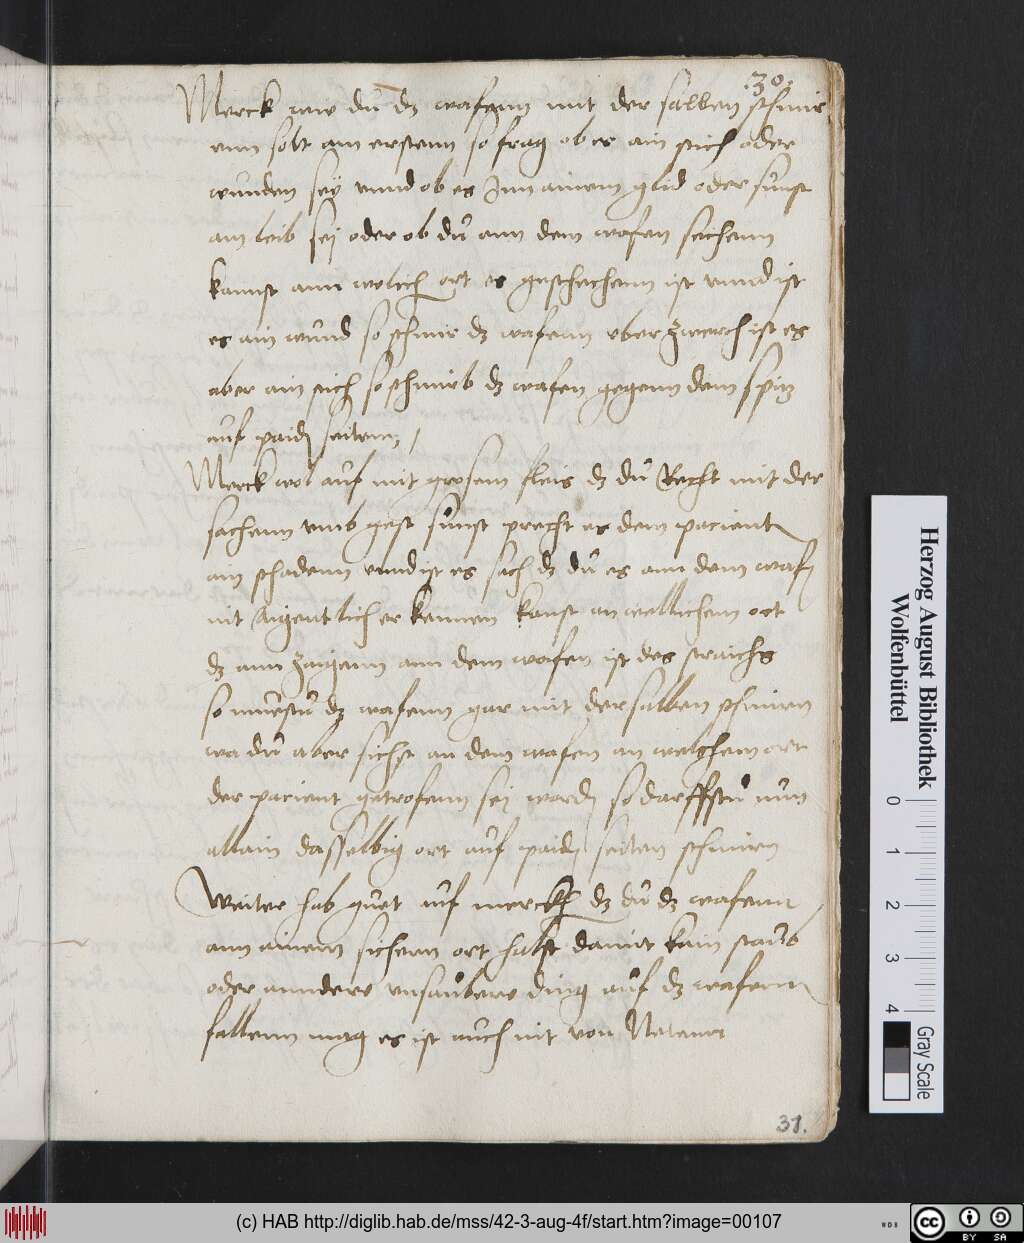 30.
Merck wie du dz wafenn mit der salben schmir
enn solt am erstenn so frag ob es ain stich oder
wunden sey vnnd ob es Inn ainem glid oder sunst
am leib sej oder ob du ann dem wafen sechenn
kannst ann welich ort es geschechenn ist vnnd ist
es ain wund so schmir dz wafenn vber zwerch ist es
aber ain stich so schmirb dz wafen gegenn dem spitz
auf paid seitenn /
Merck wol auf mit grosem fleis dz du Recht mit der
sachenn vmb gest sunst precht es dem pacient
am schadenn vnnd ist es sach dz du es ann dem wafen
nit Aigentlich er kennen kanst an wellichem ort
dz ann zaigenn ann dem wafen ist des straichs
so muestu dz wafenn gar mit der salben schmiren
wa du aber sichst an dem wafen an welchem ort
der pacient getrofenn sej word so darffstu nun
allain dasselbig ort auf paid seiten schmiren
Weiter hab guet auf merckh dz du dz wafenn
ann ainem sichern ort halst damit kain staub
oder anndere vnsaubere ding auf dz wafenn
fallenn mag es ist auch nit von Netenn
31.
Herzog August Bibliothek
Wolfenbüttel
0 1 2 3 4
Gray Scale
(c) HAB http://diglib.hab.de/mss/42-3-aug-4f/start.htm?image=00107
WDB
cc BY SA